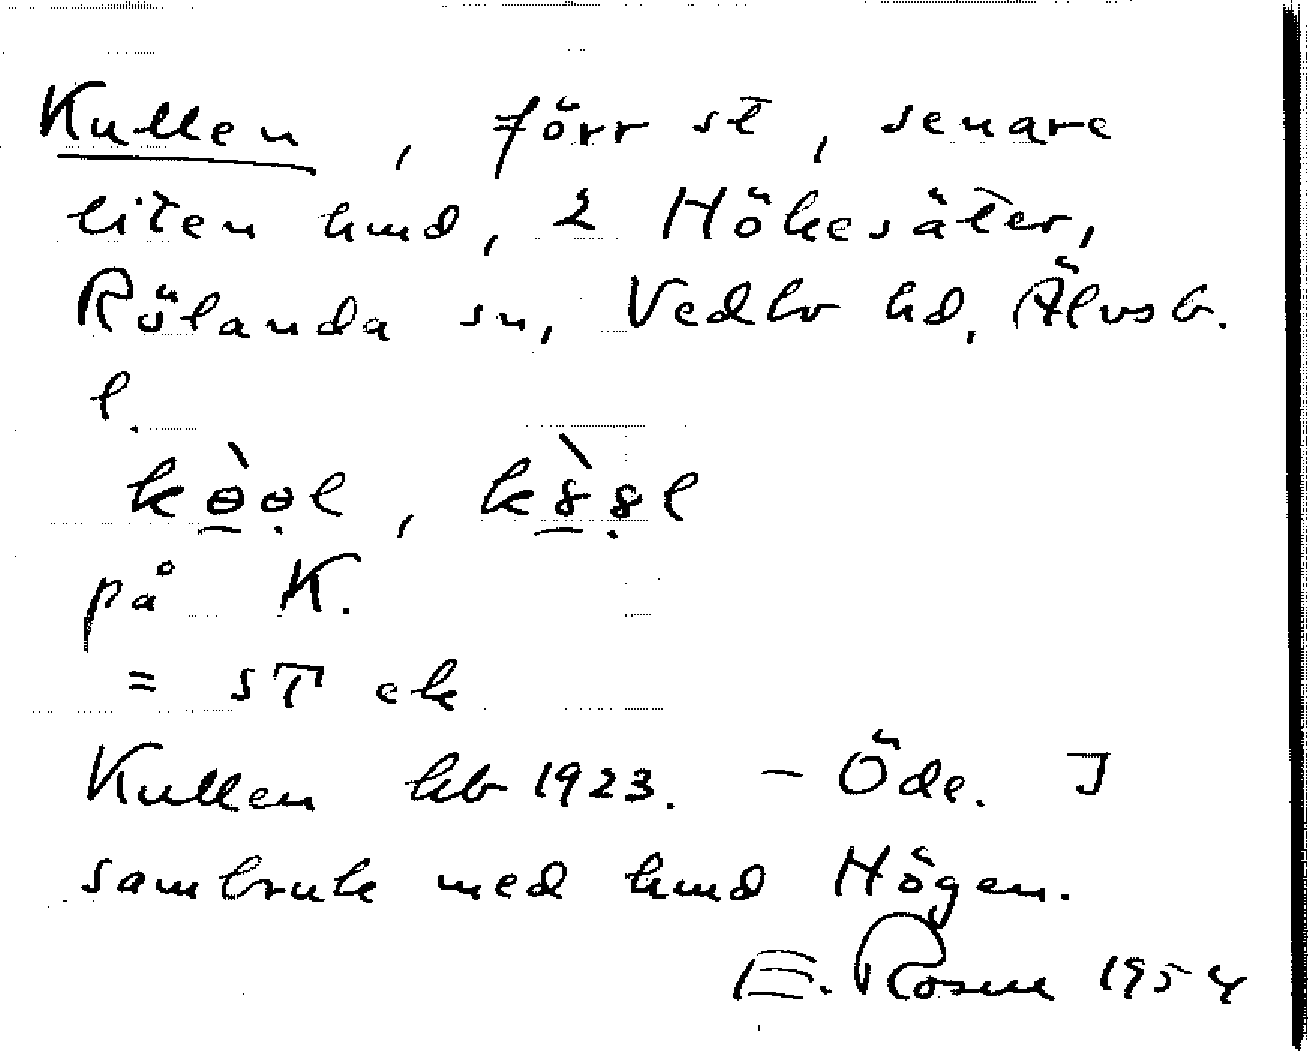 Kullen, förr st, senare
liten hmd, 2 Hökesäter,
Rölanda sn, Vedbo hd, Älvsb.
l.
på K.
= ST ek
Kullen hb 1923. – Öde. I
sambruk med hmd Högen.
E. Rosén 1954